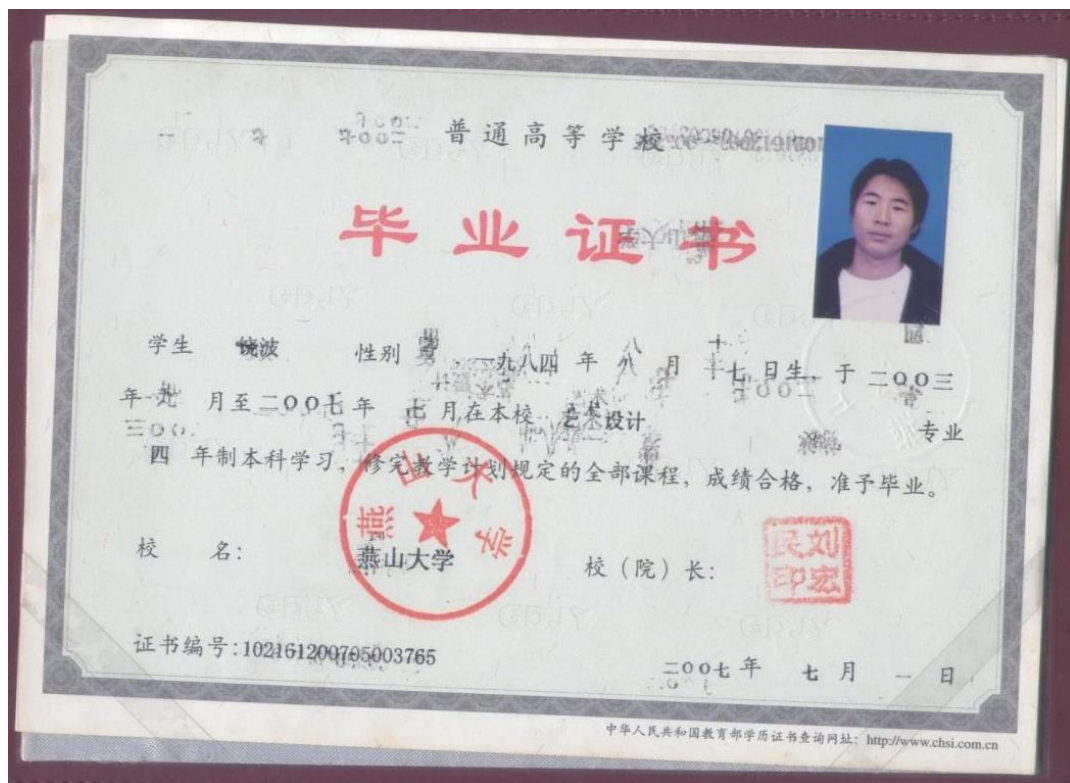 普通高等学校
毕业证书
学生 饶波 性别 男 一九八四 年 八 月 十七 日生,于 二〇〇三
年 九 月至 二〇〇七 年 七 月在本校 艺术设计 专业
四 年制本科学习,修完教学计划规定的全部课程,成绩合格,准予毕业。
燕山大学
校 名: 燕山大学 校(院)长: 刘宏民印
证书编号:102161200705003765
二〇〇七 年 七 月 一 日
中华人民共和国教育部学历证书查询网址: http://www.chsi.com.cn